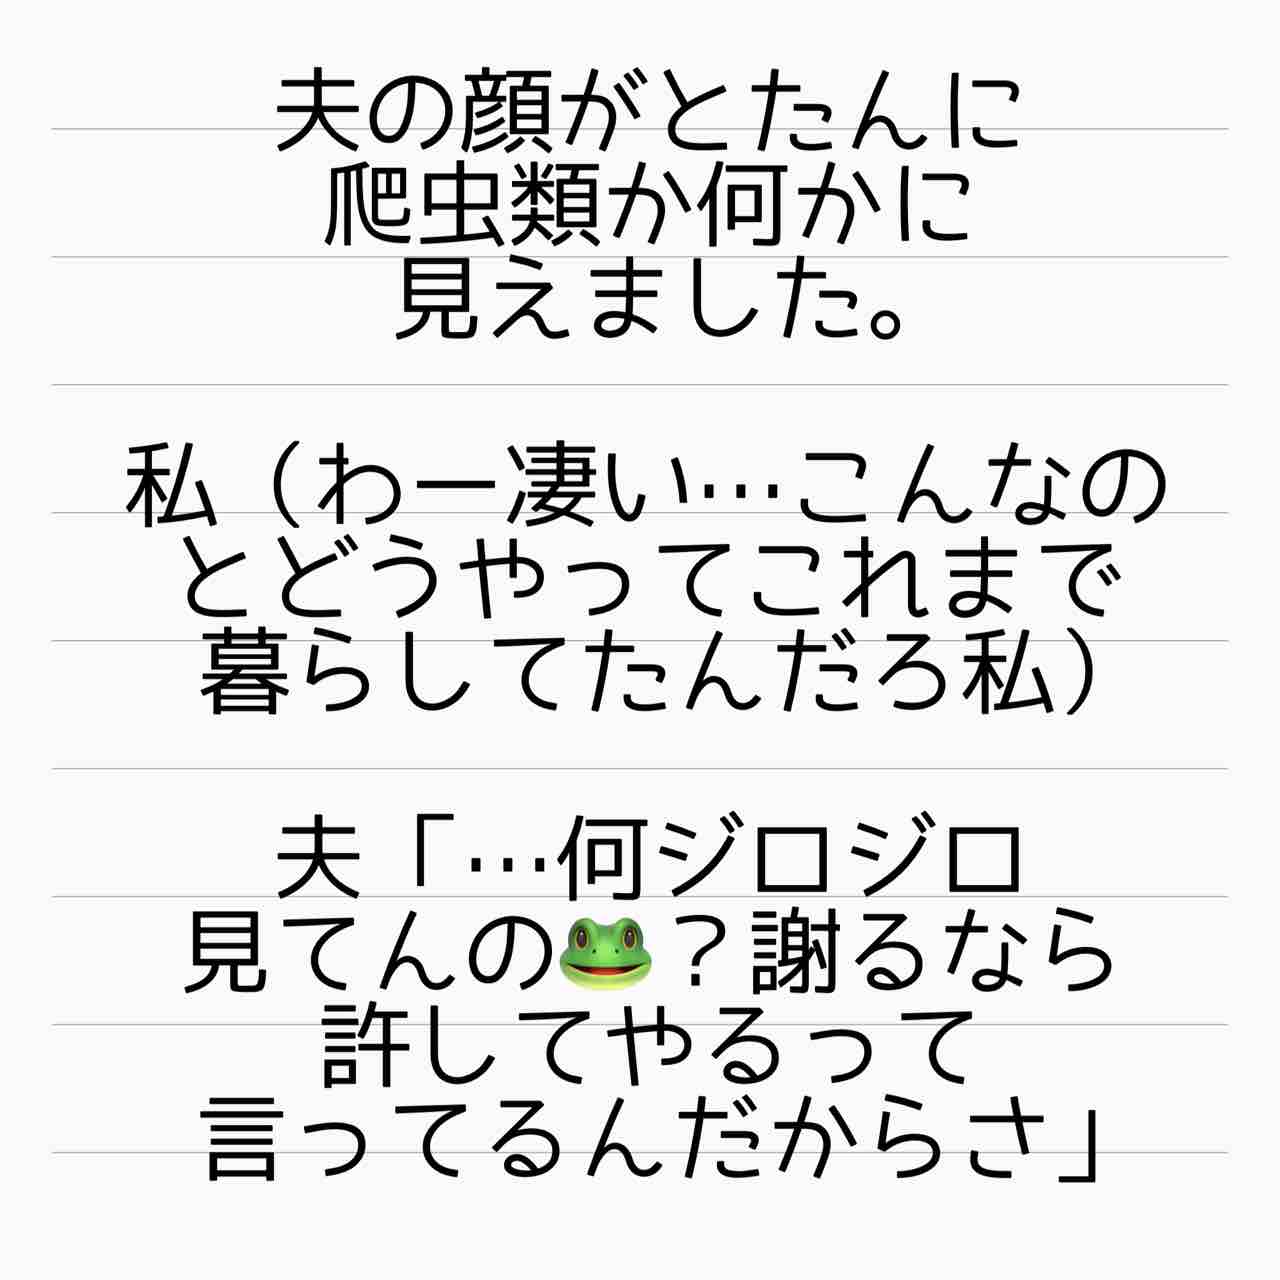 夫の顔がとたんに
爬虫類か何かに
見えました。
私（わー凄い…こんなの
とどうやってこれまで
暮らしてたんだろ私）
夫「…何ジロジロ
見てんの🐸？謝るなら
許してやるって
言ってるんだからさ」